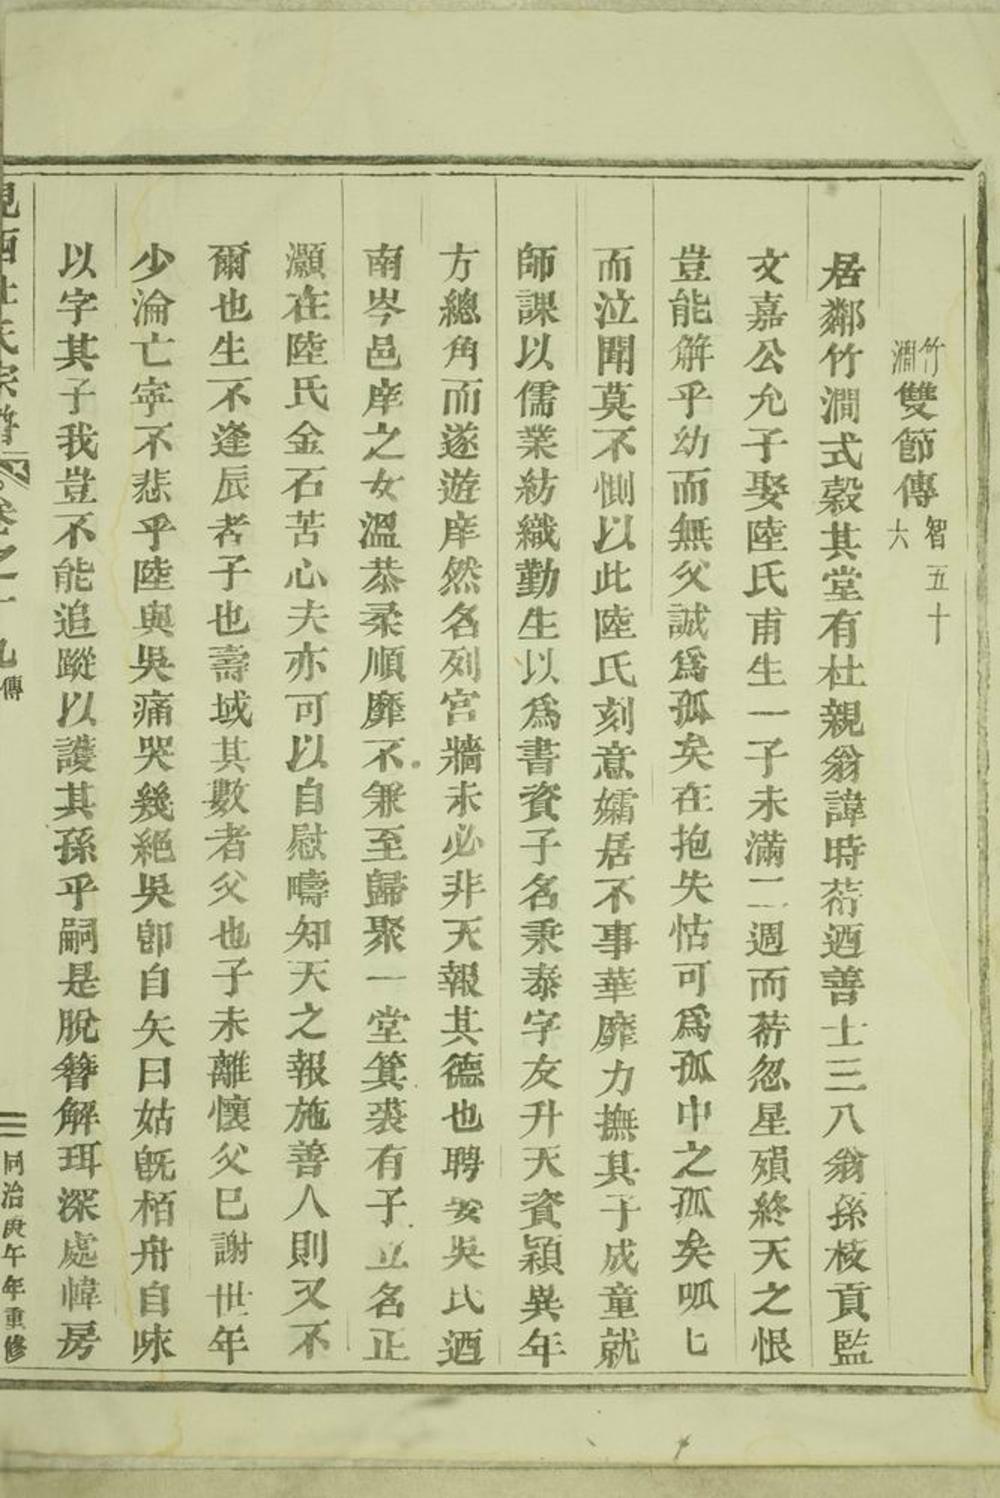 竹澗雙節傳智五十六
居鄰竹澗式穀其堂有杜親翁諱時荇迺善士三八翁孫棪貢監
文嘉公允子娶陸氏甫生一子未滿二週而荇忽星殞終天之恨
豈能解乎幼而無父誠爲孤矣在抱失怙可爲孤中之孤矣呱匕
而泣聞莫不惻以此陸氏刻意孀居不事華靡力撫其子成童就
師課以儒業紡織勤生以爲書資子名秉泰字友升天資穎異年
方總角而遂遊庠然名列宮牆未必非天報其德也聘娶吳氏迺
南岑邑庠之女溫恭柔順靡不兼至歸聚一堂箕裘有子立名正
灝在陸氏金石苦心夫亦可以自慰疇知天之報施善人則又不
爾也生不逢辰者子也壽域其數者父也子未離懷父已謝世年
少淪亡寧不悲乎陸與吳痛哭幾絕吳卽自矢曰姑旣栢舟自咏
以字其子我豈不能追蹤以護其孫乎嗣是脫簪解珥深處幃房
西杜氏宗譜 卷之十九 傳 同治庚午年重修